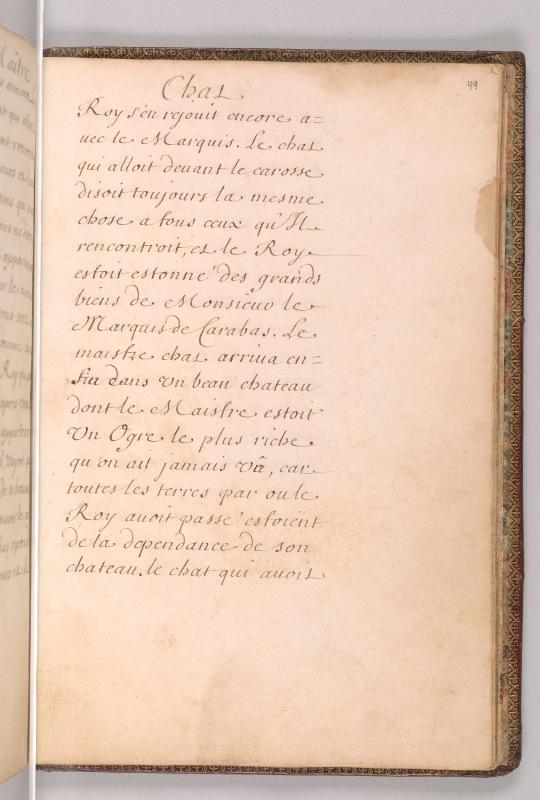 49
Chat
Roy s'en rejouit encore a=
uec le Marquis. Le chat
qui alloit deuant le carosse
disoit toujours la mesme
chose a tous ceux qu'Il
rencontroit, et le Roy
estoit estonné des grands
biens de Monsieur le
Marquis de Carabas. Le
maistre chat arriua en=
fin dans vn beau chateau
dont le Maistre estoit
Vn Ogre le plus riche
qu'on ait jamais vû, car
toutes les terres par ou le
Roy auoit passé estoient
de la dependance de son
chateau. le chat qui auoit